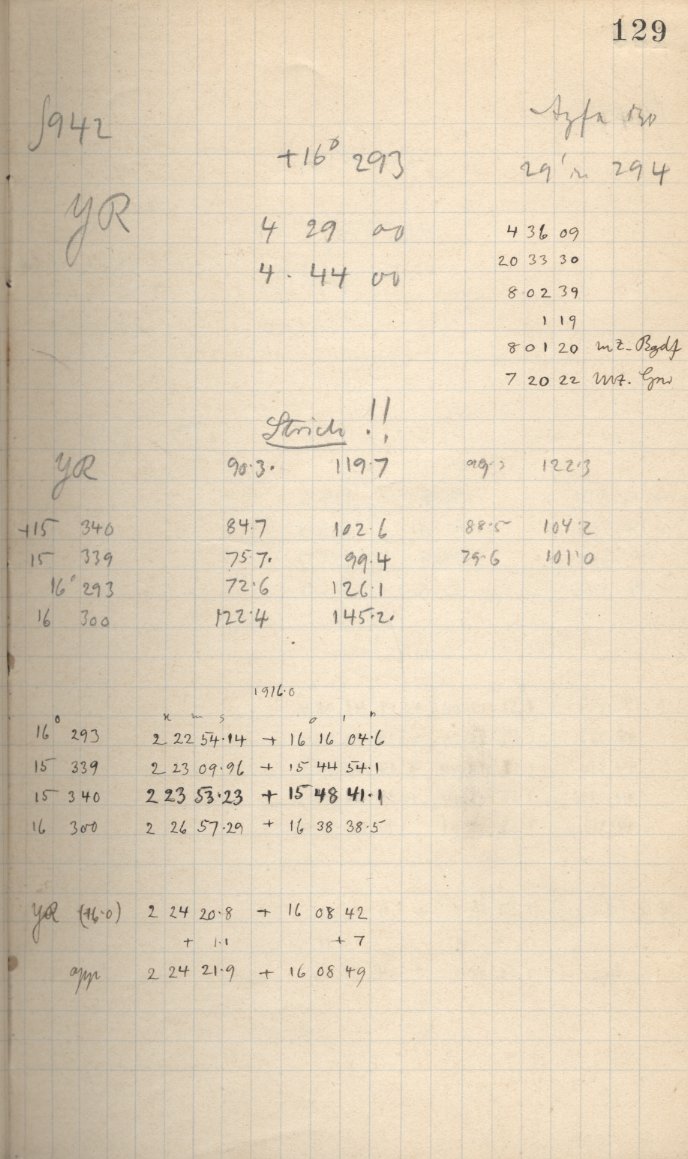 129
942
+16° 293
29'n 294
YR
4 29 00
4 . 44 00
4 36 09
20 33 30
8 02 39
1 19
8 01 20 mZ. Bgdf
7 20 22 mZ.
Strich !!
YR 90.3. 119.7 122.3
+15 340 84.7 102.6 88.5 104.2
15 339 75.7. 99.4 79.6 101.0
16° 293 72.6 126.1
16 300 122.4 145.2.
1916.0
h m s ° ' "
16° 293 2 22 54.14 + 16 16 04.6
15 339 2 23 09.96 + 15 44 54.1
15 340 2 23 53.23 + 15 48 41.1
16 300 2 26 57.29 + 16 38 38.5
YR (16.0) 2 24 20.8 + 16 08 42
+ 1.1 + 7
app 2 24 21.9 + 16 08 49